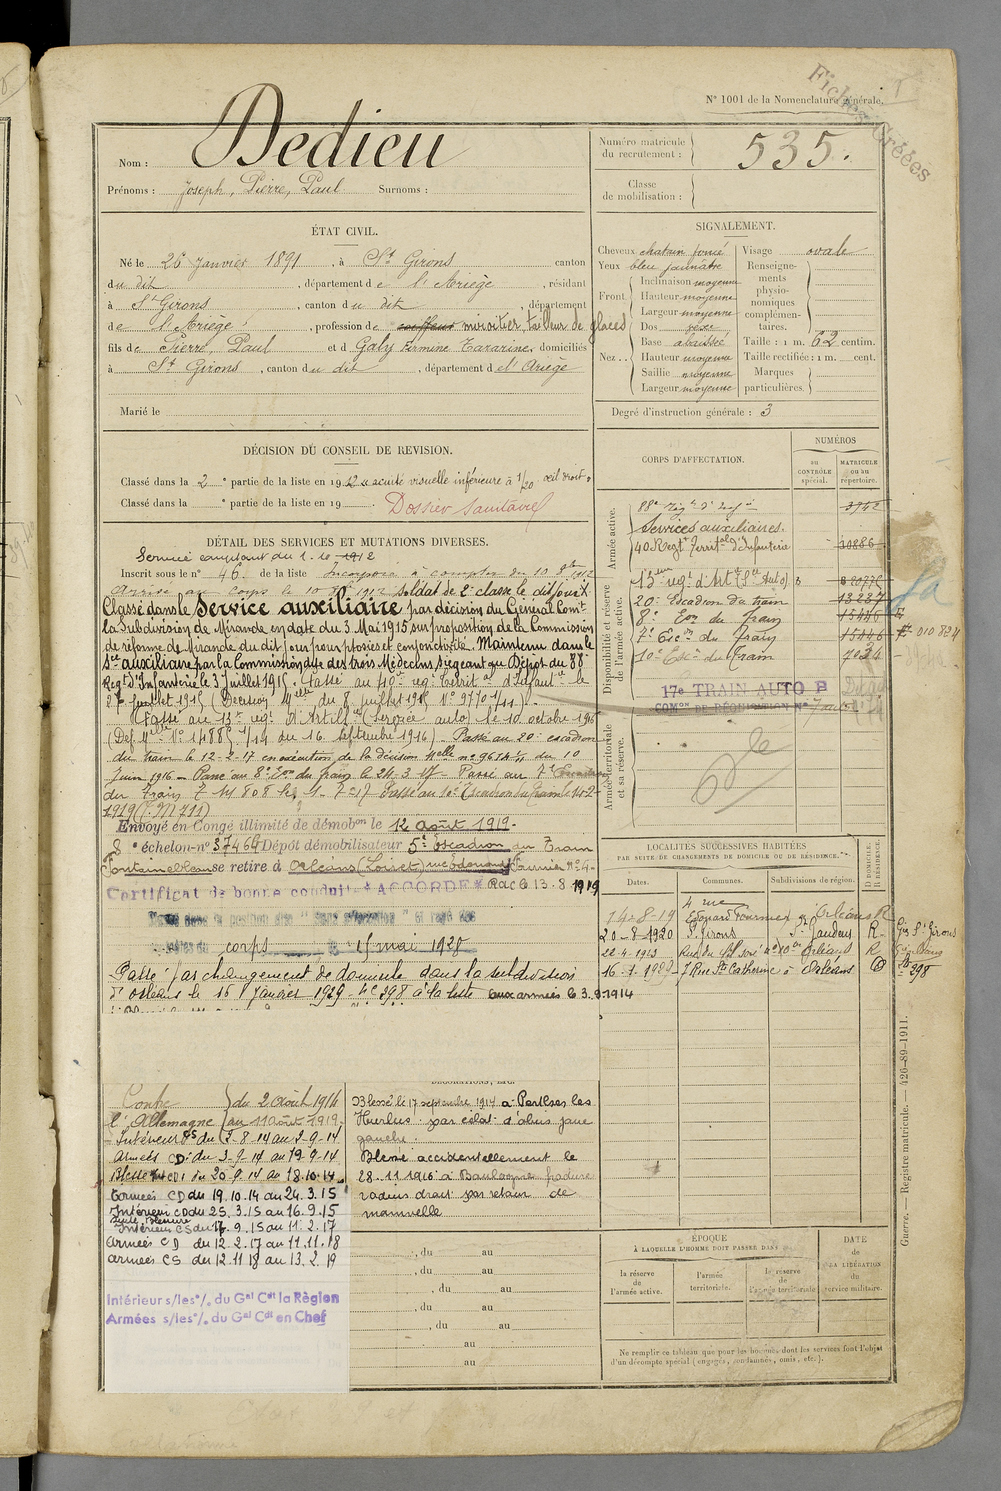 N° 1001 de la Nomenclature générale.
Fiches Créées
Nom : Dedieu
Prénoms : Joseph, Pierre, Paul Surnoms :
Numéro matricule du recrutement : 535.
Classe de mobilisation :
ÉTAT CIVIL.
Né le 26 Janvier 1891, à St Girons canton
du dit, département de l'Ariège, résidant
à St Girons, canton du dit, département
de l'Ariège, profession de coiffeur miroitier, tailleur de glaces
fils de Pierre, Paul et d Galy Firmine Tazarine, domiciliés
à St Girons, canton du dit, département d el' Ariège
Marié le
SIGNALEMENT.
Cheveux chatain foncé
Yeux bleu jaunâtre
Front Inclinaison moyenne
Hauteur moyenne
Largeur moyenne
Nez . . Dos
Base abaissée
Hauteur moyenne
Saillie moyenne
Largeur moyenne
Visage ovale
Renseignements physionomiques complémentaires.
Taille : 1 m. 62 centim.
Taille rectifiée : 1 m. cent.
Marques particulières.
Degré d'instruction générale : 3
DÉCISION DU CONSEIL DE REVISION.
Classé dans la 2 e partie de la liste en 1912 acuité visuelle inférieure à 1/20 œil droit
Classé dans la e partie de la liste en 19
Dossier Sanitaire
DÉTAIL DES SERVICES ET MUTATIONS DIVERSES.
Service comptant du 1. 10 1912
Inscrit sous le n° 46 de la liste Incorporé à compter du 10 8bre 1912
Arrivé au corps le 10 8bre 1912 soldat de 2e classe le dit jour.
Classé dans le Service auxiliaire par décision du Général Comt
la Subdivision de Mirande en date du 3 Mai 1915, sur proposition de la Commission
de réforme de Mirande du dit jour pour ptosies et conjonctivite. Maintenu dans le
Sce auxiliaire par la Commission dite des trois Médecins siégeant au Dépot du 88e
Regt d'Infanterie le 3 juillet 1915. Passé au 40e reg. Territ. d'Infantie le
27 Juillet 1915 (Décision Melle du 8 juillet 1915 N° 9770 1/11).
Passé au 13e regt d'Artillie (Service auto) le 10 octobre 1916
(Def Melle N° 14885 1/14 du 16 septembre 1916). Passé au 20e escadron
du train le 12-2-17 en exécution de la décision Melle n° 9614 1/11 du 10
Juin 1916 - Passé au 8e Eon du train le 24-3-17 - Passé au 7e Escadron
du Train 7 M 808 le 1-7-17 Passé au 10e Escadron du Train le 14-2-
1919 (T. M 711)
Envoyé en Congé illimité de démobon le 12 août 1919.
8 e échelon - n° 37464 Dépôt démobilisateur 5e Escadron du Train
Fontainebleau se retire à Orléans (Loiret) rue Edouard Fournier N° 4-
Certificat de bonne conduite "ACCORDE" Rac le 13. 8 1919
corps 15 mai 1928
Passé par changement de domicile dans la subdivision
d'Orléans le 16 Janvier 1929 - N° 398 à la liste aux armées le 3. 9. 1914
CORPS D'AFFECTATION.
NUMÉROS
AU CONTRÔLE SPÉCIAL.
MATRICULE OU AU RÉPERTOIRE.
Armée active.
88e Régt d'Infie 3742
Services auxiliaires.
40 Regt Territal d'Infanterie 10886
Disponibilité et réserve de l'armée active.
13eme regt d'Art (Sce Auto)
20e Escadron du train 13237
8e Eon du train 15446
7e Eon du Train 15446 010 824
10e Eon du Train 7034
17e TRAIN AUTO B
COMon DE RÉQUISITION N°
Armée territoriale et sa réserve.
LOCALITÉS SUCCESSIVES HABITÉES
PAR SUITE DE CHANGEMENTS DE DOMICILE OU DE RÉSIDENCE.
Dates. Communes. Subdivisions de région. D DOMICILE. R RÉSIDENCE.
14-8-19 4 rue Edouard Fournier Orléans R
20-8-1920 St Girons St Gaudens R Gie St Girons
22-4-1923 Orléans R
16-1-1929 7 Rue Ste Catherine à Orléans D 398
DÉCORATIONS, ETC.
Contre l'Allemagne du 2 Août 1914 au 11 août 1919.
Intérieur CS du 2-8-14 au 2-9-14
Armées CD. du 3-9-14 au 19-9-14
Blessé CD1 du 20-9-14 au 18.10.14
Armées CD du 19.10.14 au 24.3.15
Intérieur CD du 25.3.15 au 16.9.15
Intérieur CS du 17.9.15 au 11.2.17
Armées CD du 12.2.17 au 11.11.18
Armées CS du 12.11.18 au 13.2.19
Intérieur s/les °/. du Gal Cdt la Région
Armées s/les °/. du Gal Cdt en Chef
Blessé le 17 septembre 1914 à Perthes les
Hurlus par éclat d'obus joue
gauche.
Blessé accidentellement le
28.11.1916 à Boulogne fracture
radius droit par retour de
manivelle
, du au
, du au
, du au
, du au
, du au
au
au
ÉPOQUE
À LAQUELLE L'HOMME DOIT PASSER DANS
la réserve de l'armée active.
l'armée territoriale.
la réserve de l'armée territoriale
DATE de LA LIBÉRATION du service militaire.
Ne remplir ce tableau que pour les hommes dont les services font l'objet
d'un décompte spécial (engagés, condamnés, omis, etc.).
Guerre. — Registre matricule. — 426-89-1911.